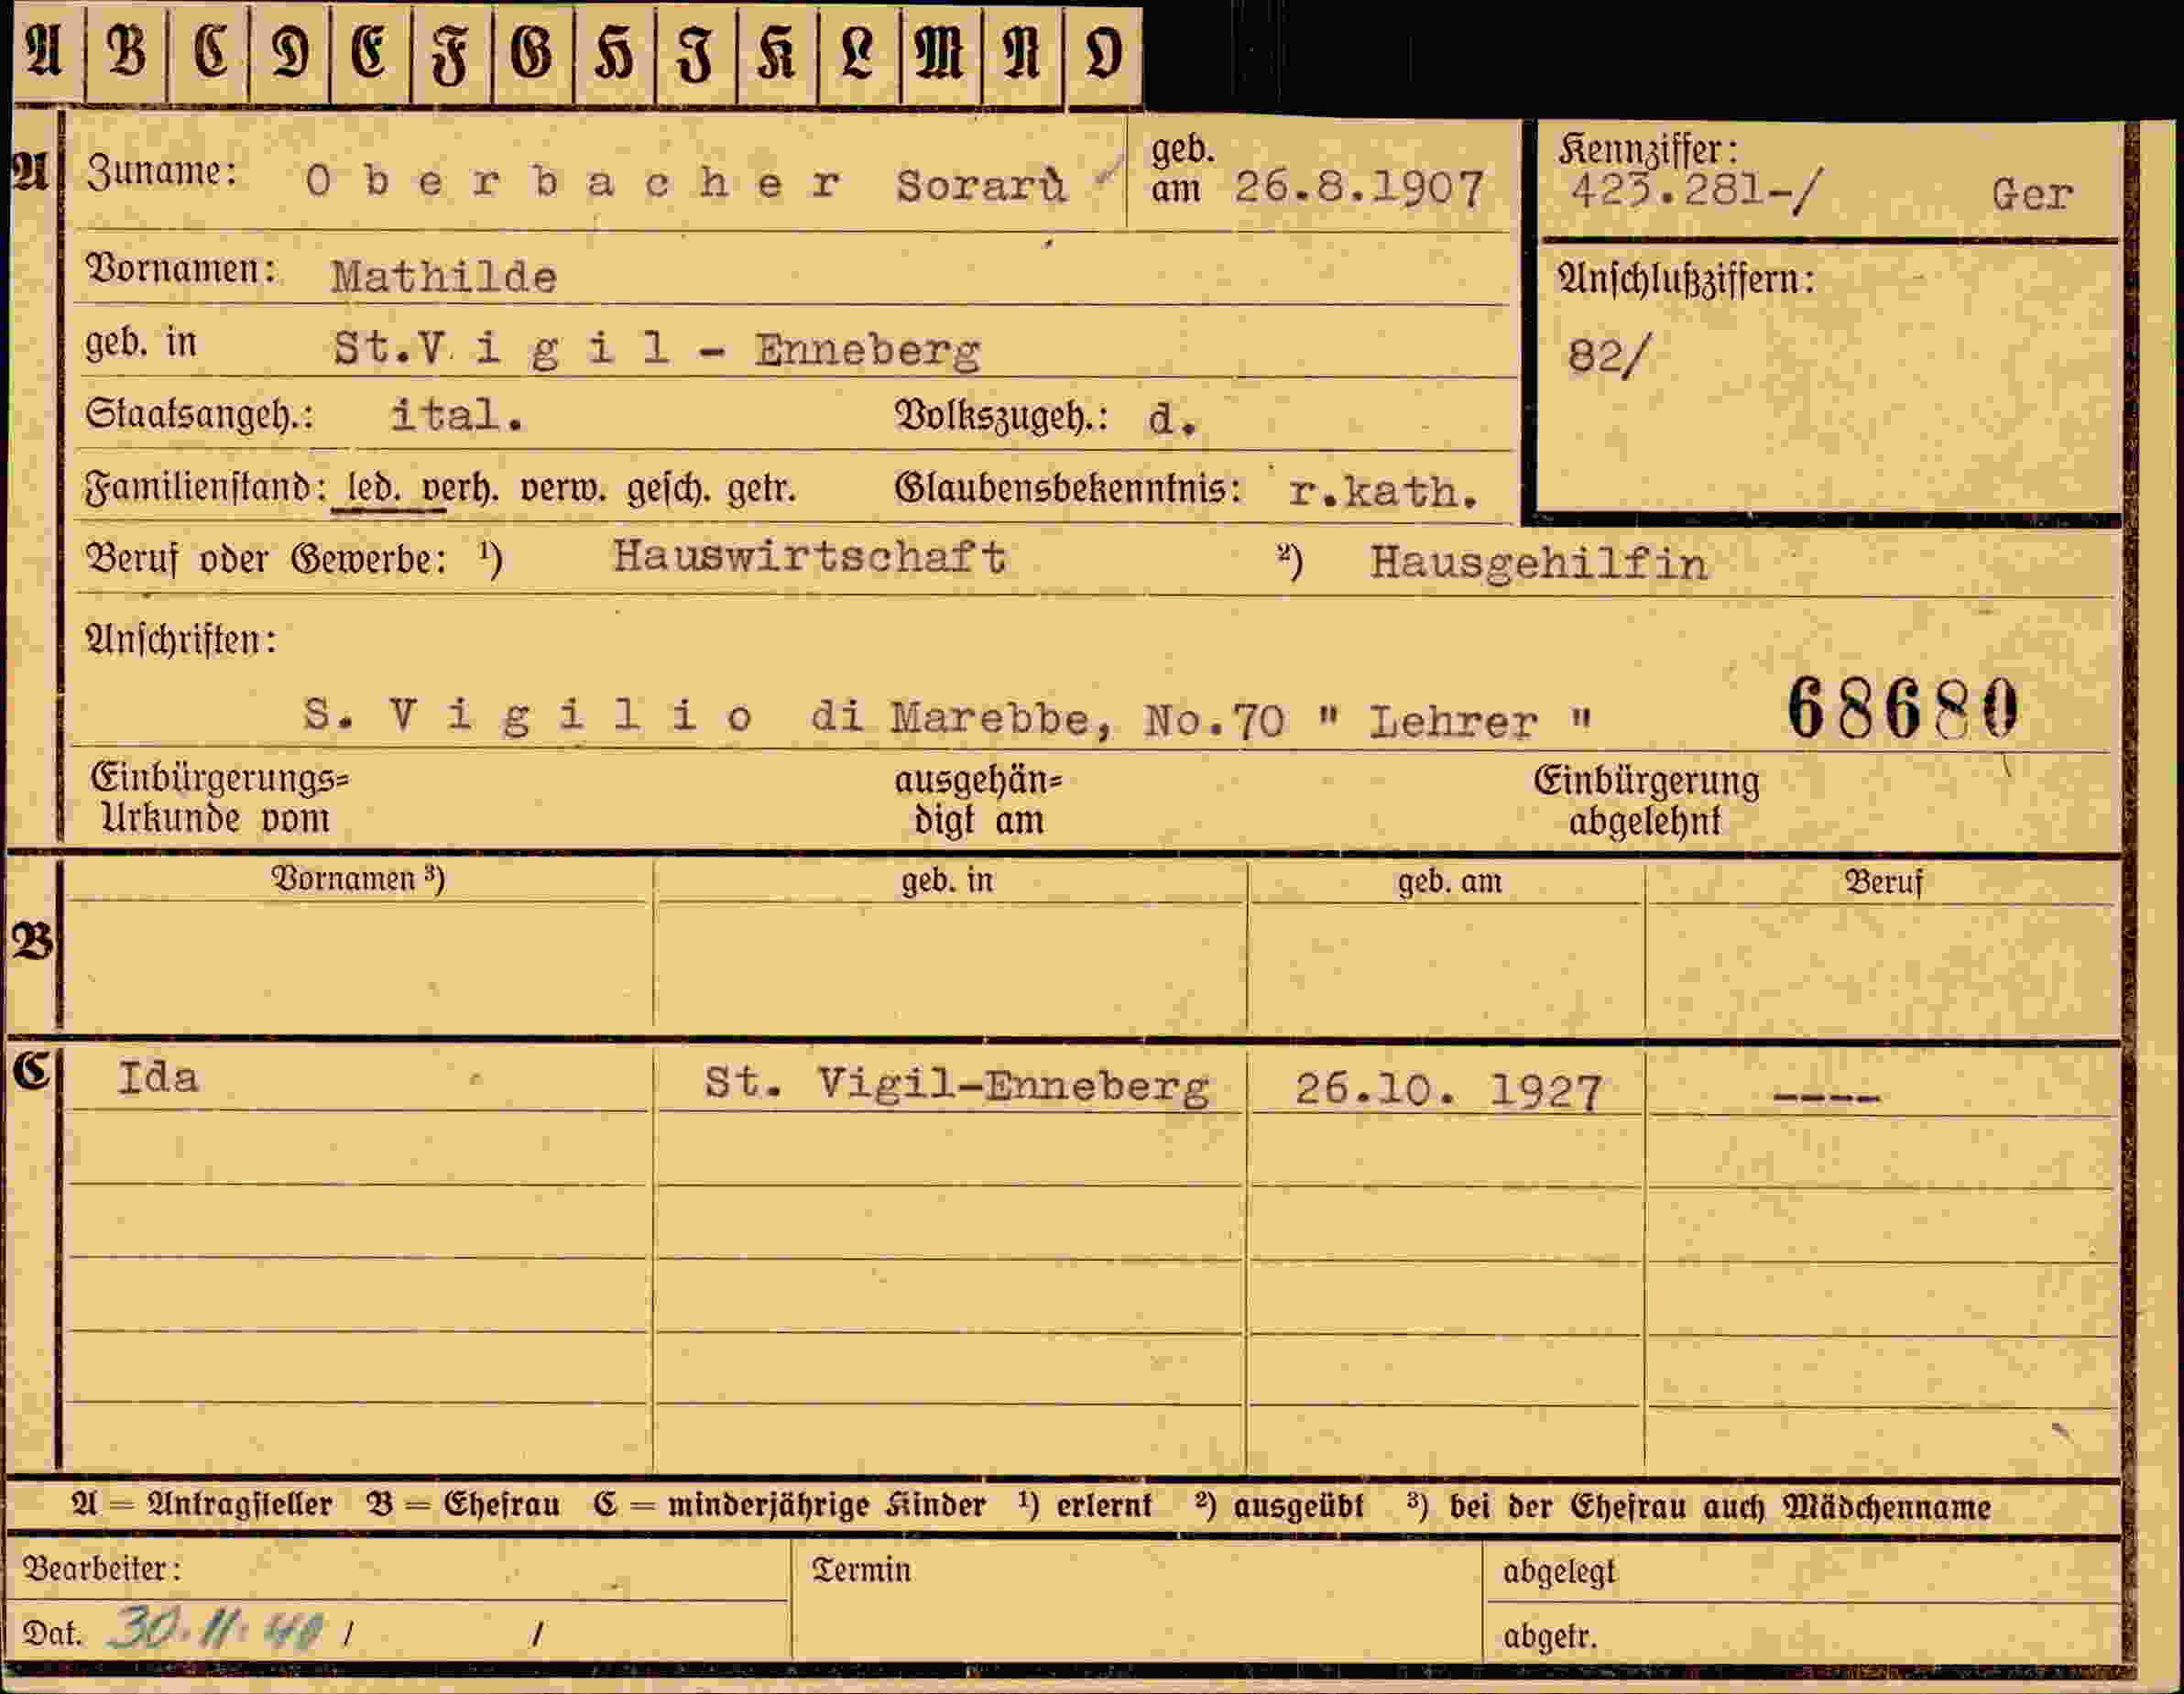 A B C D E F G H I K L M N O
A Zuname: O b e r b a c h e r Sorarù geb. am 26.8.1907
Kennziffer: 423.281-/ Ger
Vornamen: Mathilde
Anschlußziffern:
geb. in St.V i g i l - Enneberg
82/
Staatsangeh.: ital. Volkszugeh.: d.
Familienstand: led. verh. verw. gesch. getr. Glaubensbekenntnis: r.kath.
Beruf oder Gewerbe: ¹) Hauswirtschaft ²) Hausgehilfin
Anschriften:
S. V i g i l i o di Marebbe, No.70 " Lehrer " 68680
Einbürgerungs= ausgehän= Einbürgerung
Urkunde vom digt am abgelehnt
Vornamen ³) geb. in geb. am Beruf
B
C Ida St. Vigil-Enneberg 26.10. 1927 ----
A = Antragsteller B = Ehefrau C = minderjährige Kinder ¹) erlernt ²) ausgeübt ³) bei der Ehefrau auch Mädchenname
Bearbeiter: Termin abgelegt
Dat. 30.11.40 / / abgetr.